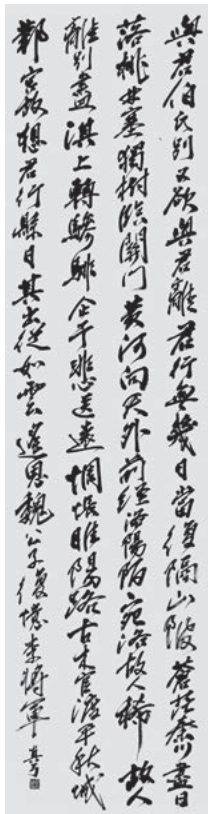 與君伯氏別又欲與君離君行無幾日當復隔山陂蒼茫秦川盡日
落桃林塞獨樹臨關門黃河向天外前經洛陽陌宛洛故人稀故人
離別盡淇上轉驂騑企予悲送遠惆悵睢陽路古木官渡平秋城
鄴宮故想君行縣日其出從如雲遙思魏公子復憶李將軍